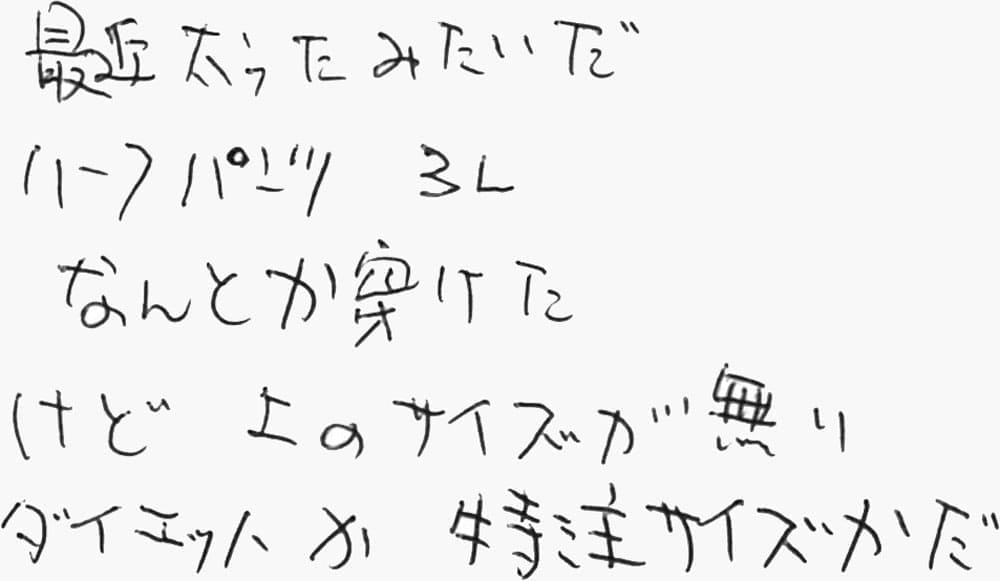 最近太ったみたいだ
ハーフパンツ 3L
なんとか穿けた
けど 上のサイズが無い
ダイエットか 特注サイズかだ